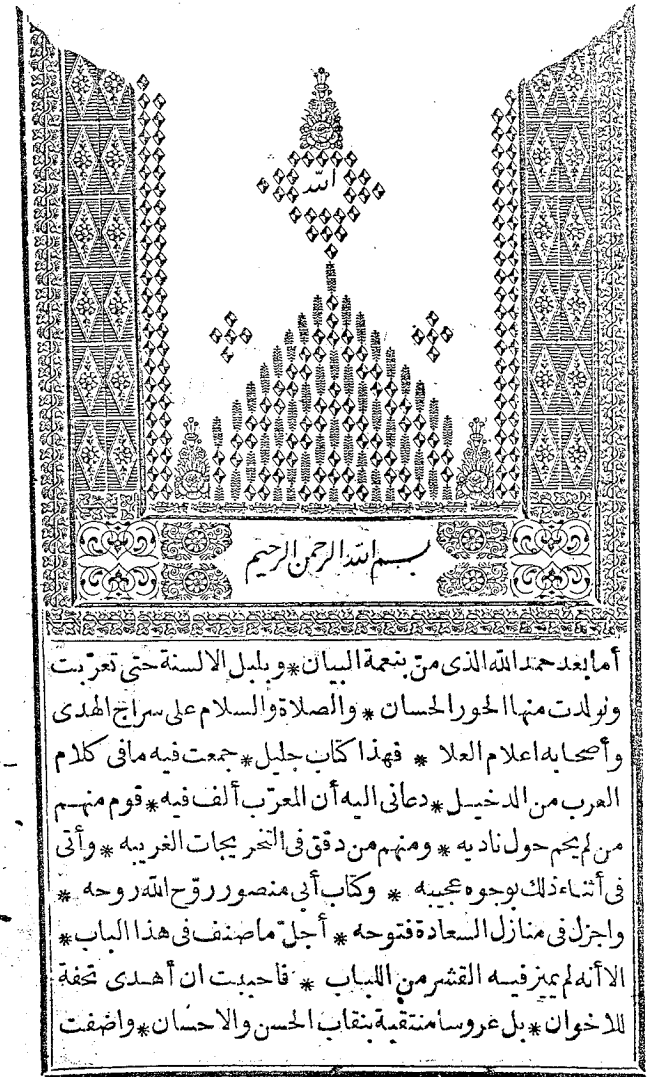 الله
بسم الله الرحمن الرحيم
أما بعد حمد الله الذى منّ بنعمة البيان * وبلبل الالسنة حتى تعرّبت
وتولدت منها الحور الحسان * والصلاة والسلام على سراج الهدى
وأصحابه اعلام العلا * فهذا كتاب جليل * جمعت فيه ما فى كلام
العرب من الدخيل * دعانى اليه أن المعرّب ألف فيه * قوم منهم
من لم يحم حول ناديه * ومنهم من دقق فى التخريجات الغريبه * وأتى
فى أثناء ذلك بوجوه عجيبه * وكتاب أبى منصور روّح الله روحه *
واجزل فى منازل السعادة فتوحه * أجلّ ما صنف فى هذا الباب *
الا أنه لم يميز فيه القشر من اللباب * فأحببت ان أهدى تحفة
للاخوان * بل عروسا منتقبة بنقاب الحسن والاحسان * واضفت